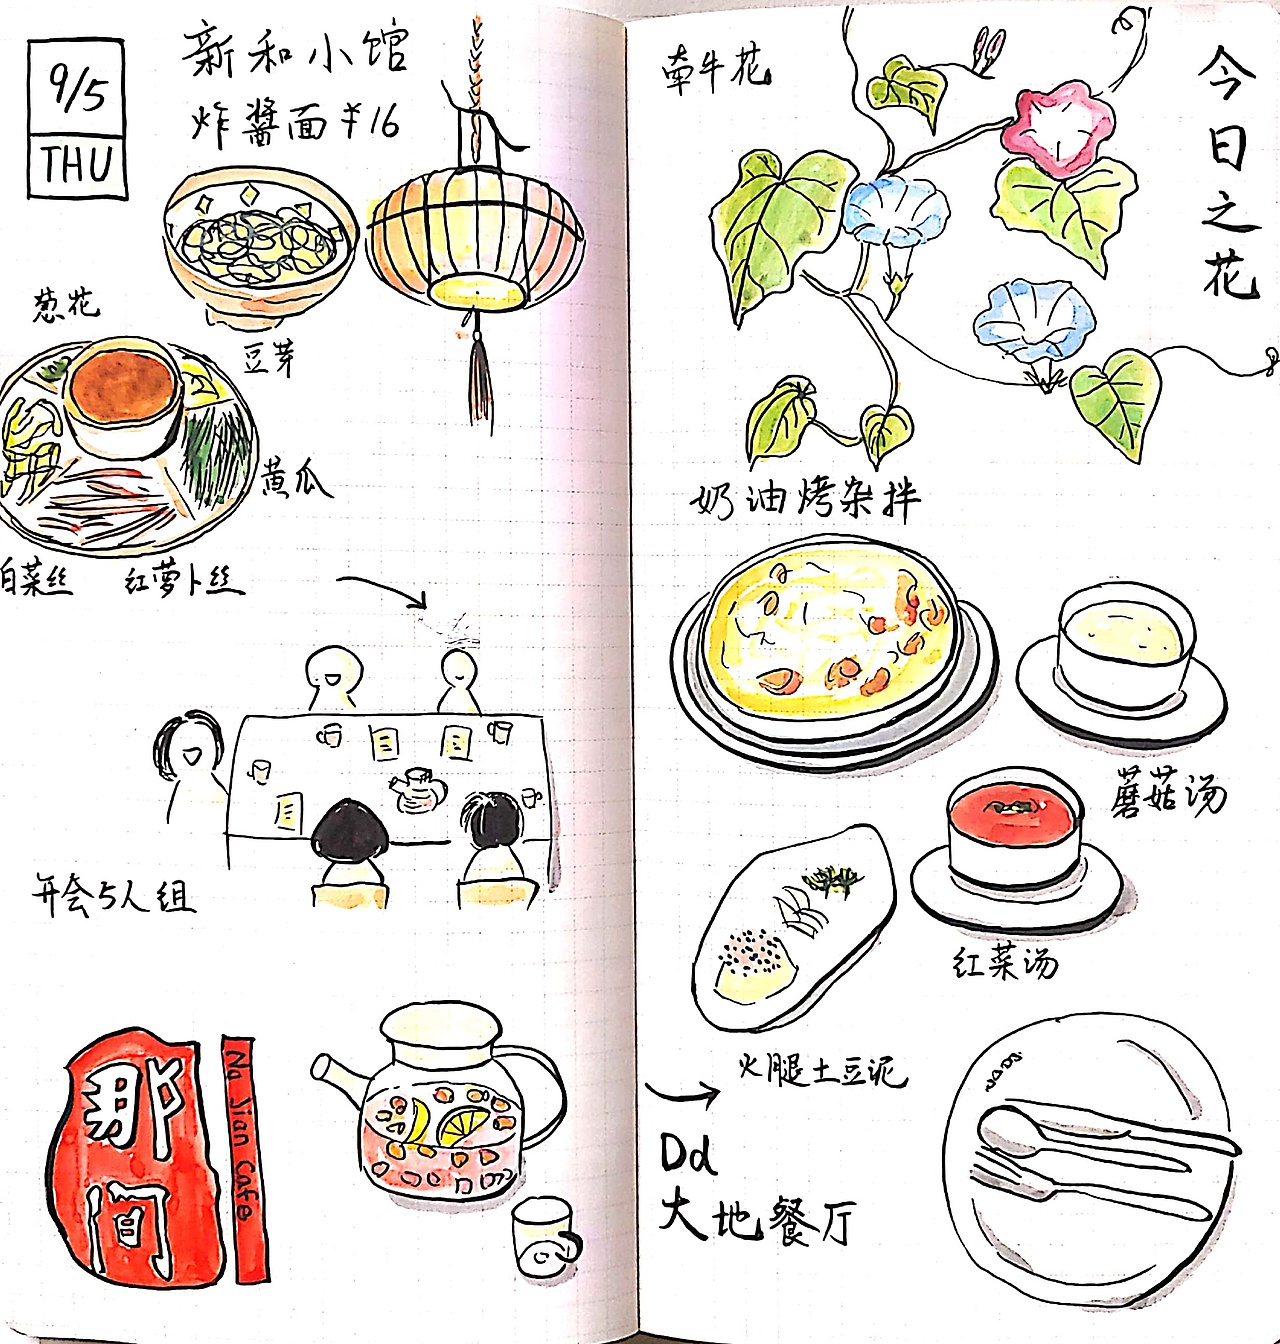 9/5
THU
新和小馆
炸醬面¥16
葱花
豆芽
黄瓜
白菜丝
红萝卜丝
开会5人组
那间
Na Jian Cafe
牵牛花
今日之花
奶油烤杂拌
蘑菇汤
红菜汤
火腿土豆泥
Dd
大地餐厅